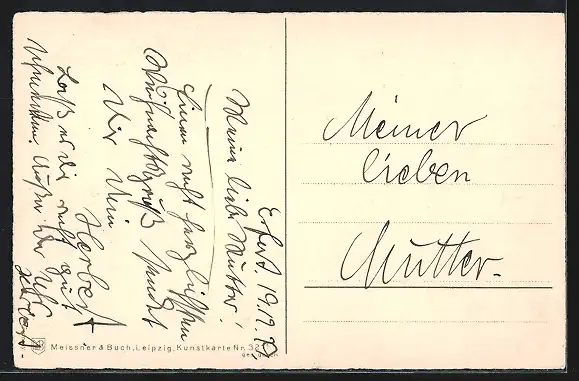 Erfurt. 19.12.
Meine liebe Mutter!
Einen recht herzlichen
Weihnachtsgruß sendet
Dir Dein
Herbert
Laß es dir recht gut
schmecken.
Meiner
lieben
Mutter.
Meissner & Buch, Leipzig, Kunstkarte Nr. 32